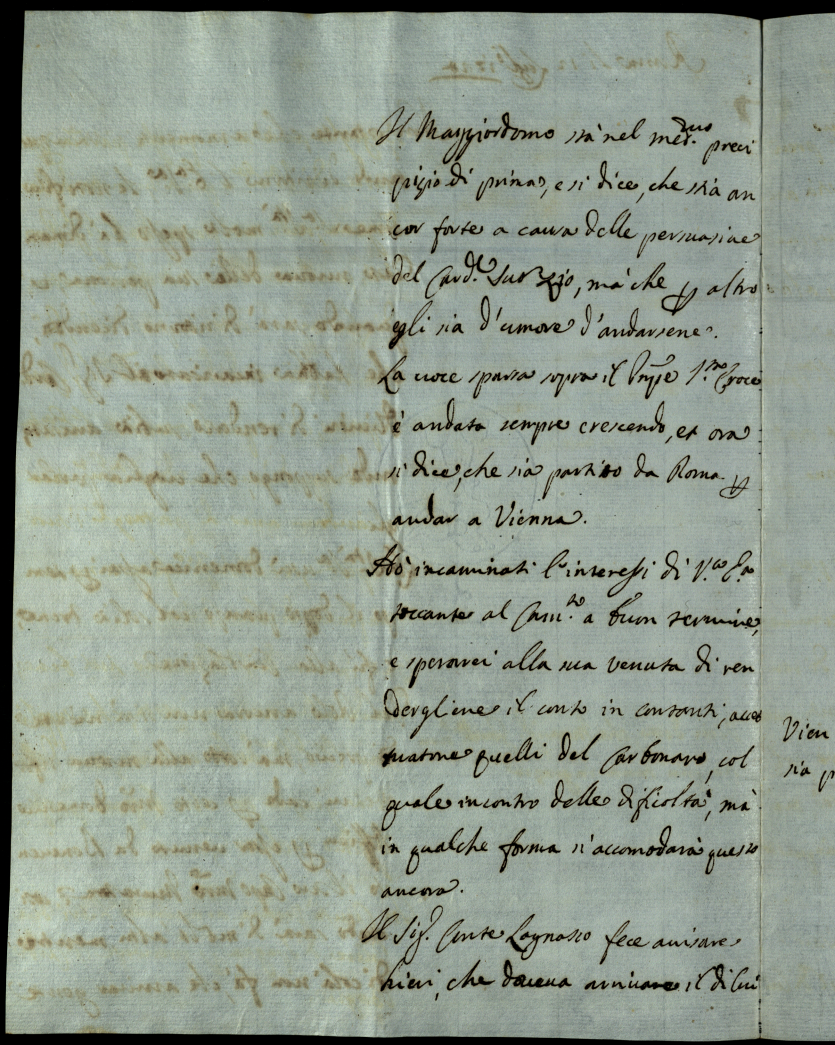 Il Maggiordomo stà nel med.mo preci
pizio di prima, e si dice, che stia an
cor forte a causa delle persuasive
del Card.l , mà che p altro
egli sia d'umore d'andarsene.
La voce sparsa sopra il Pnṗe S.ta Croce
è andata sempre crescendo, et ora
si dice, che sia partito da Roma p
andar a Vienna.
Hò incaminati l'interessi di V.ra E.za
toccante al a buon termine,
e sperarei alla sua venuta di ren
dergliene il conto in contanti, accet
tuatone quelli del Carbonaro, col
quale incontro delle dificoltà, mà
in qualche forma s'accomodarà questo
ancora.
Il Sig.r Conte Lagnasco fece avisare
hieri, che doveva arrivare il di lui
Vien
sia p